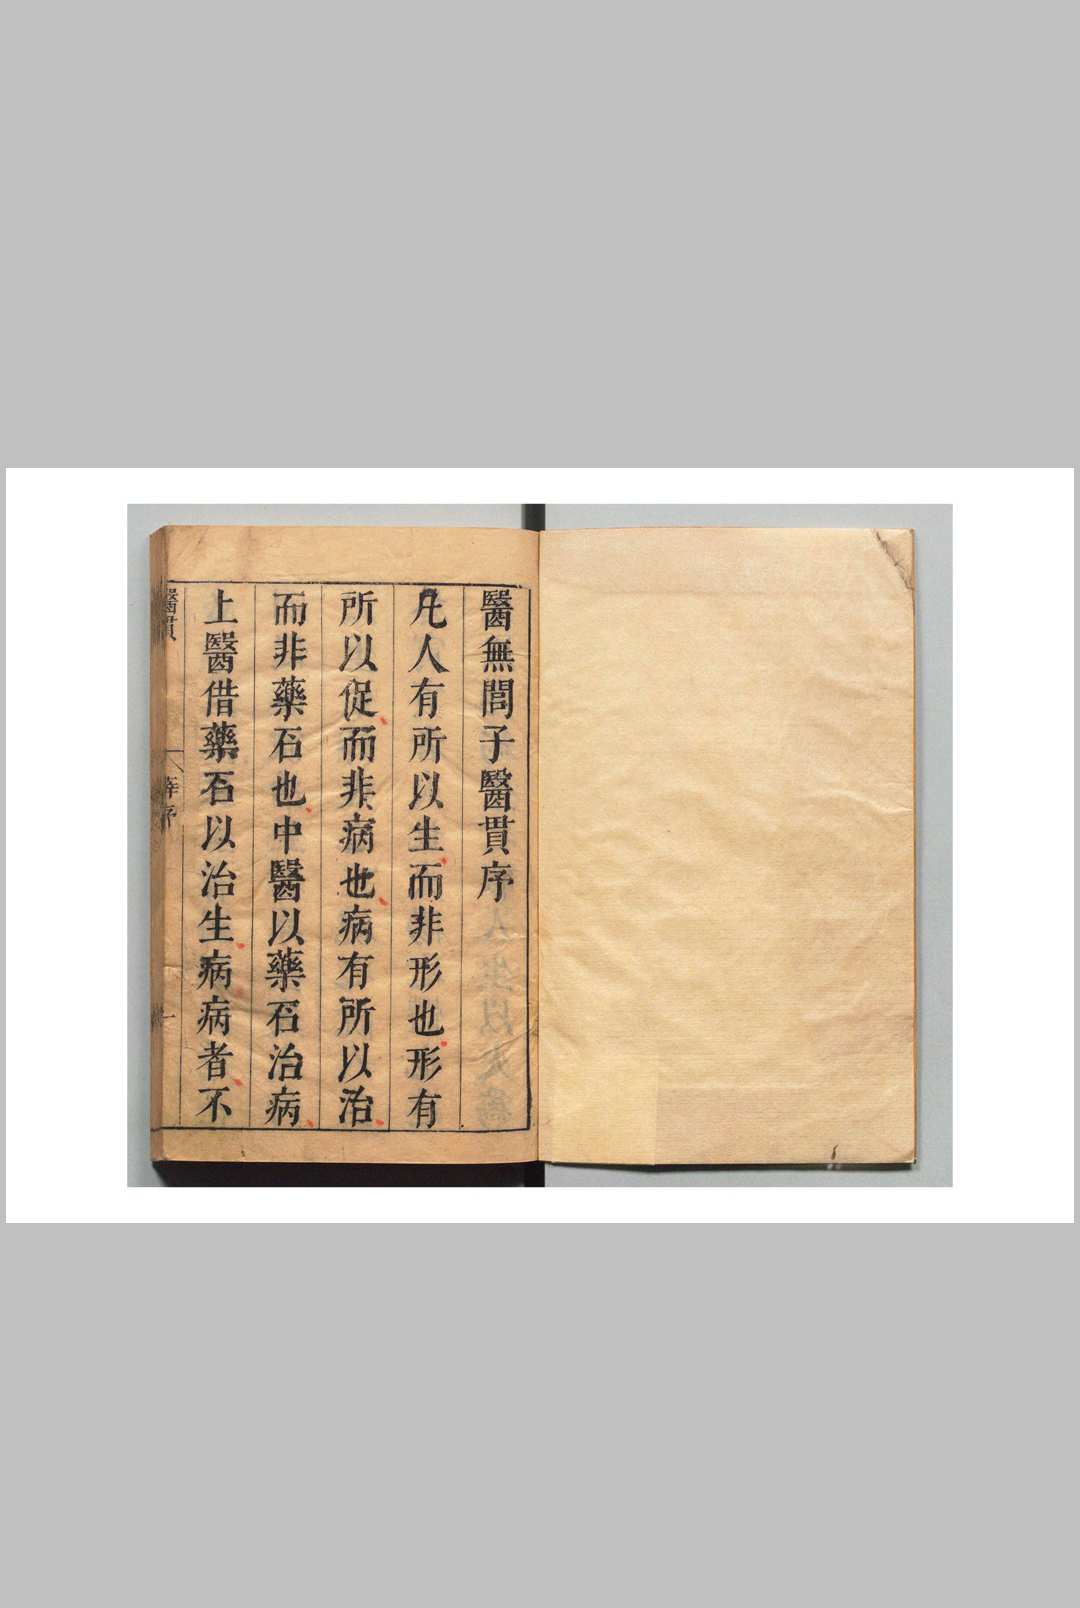 醫無閭子醫貫序
凡人有所以生而非形也形有
所以促而非病也病有所以治
而非藥石也中醫以藥石治病
上醫借藥石以治生病病者不
醫貫
序
一